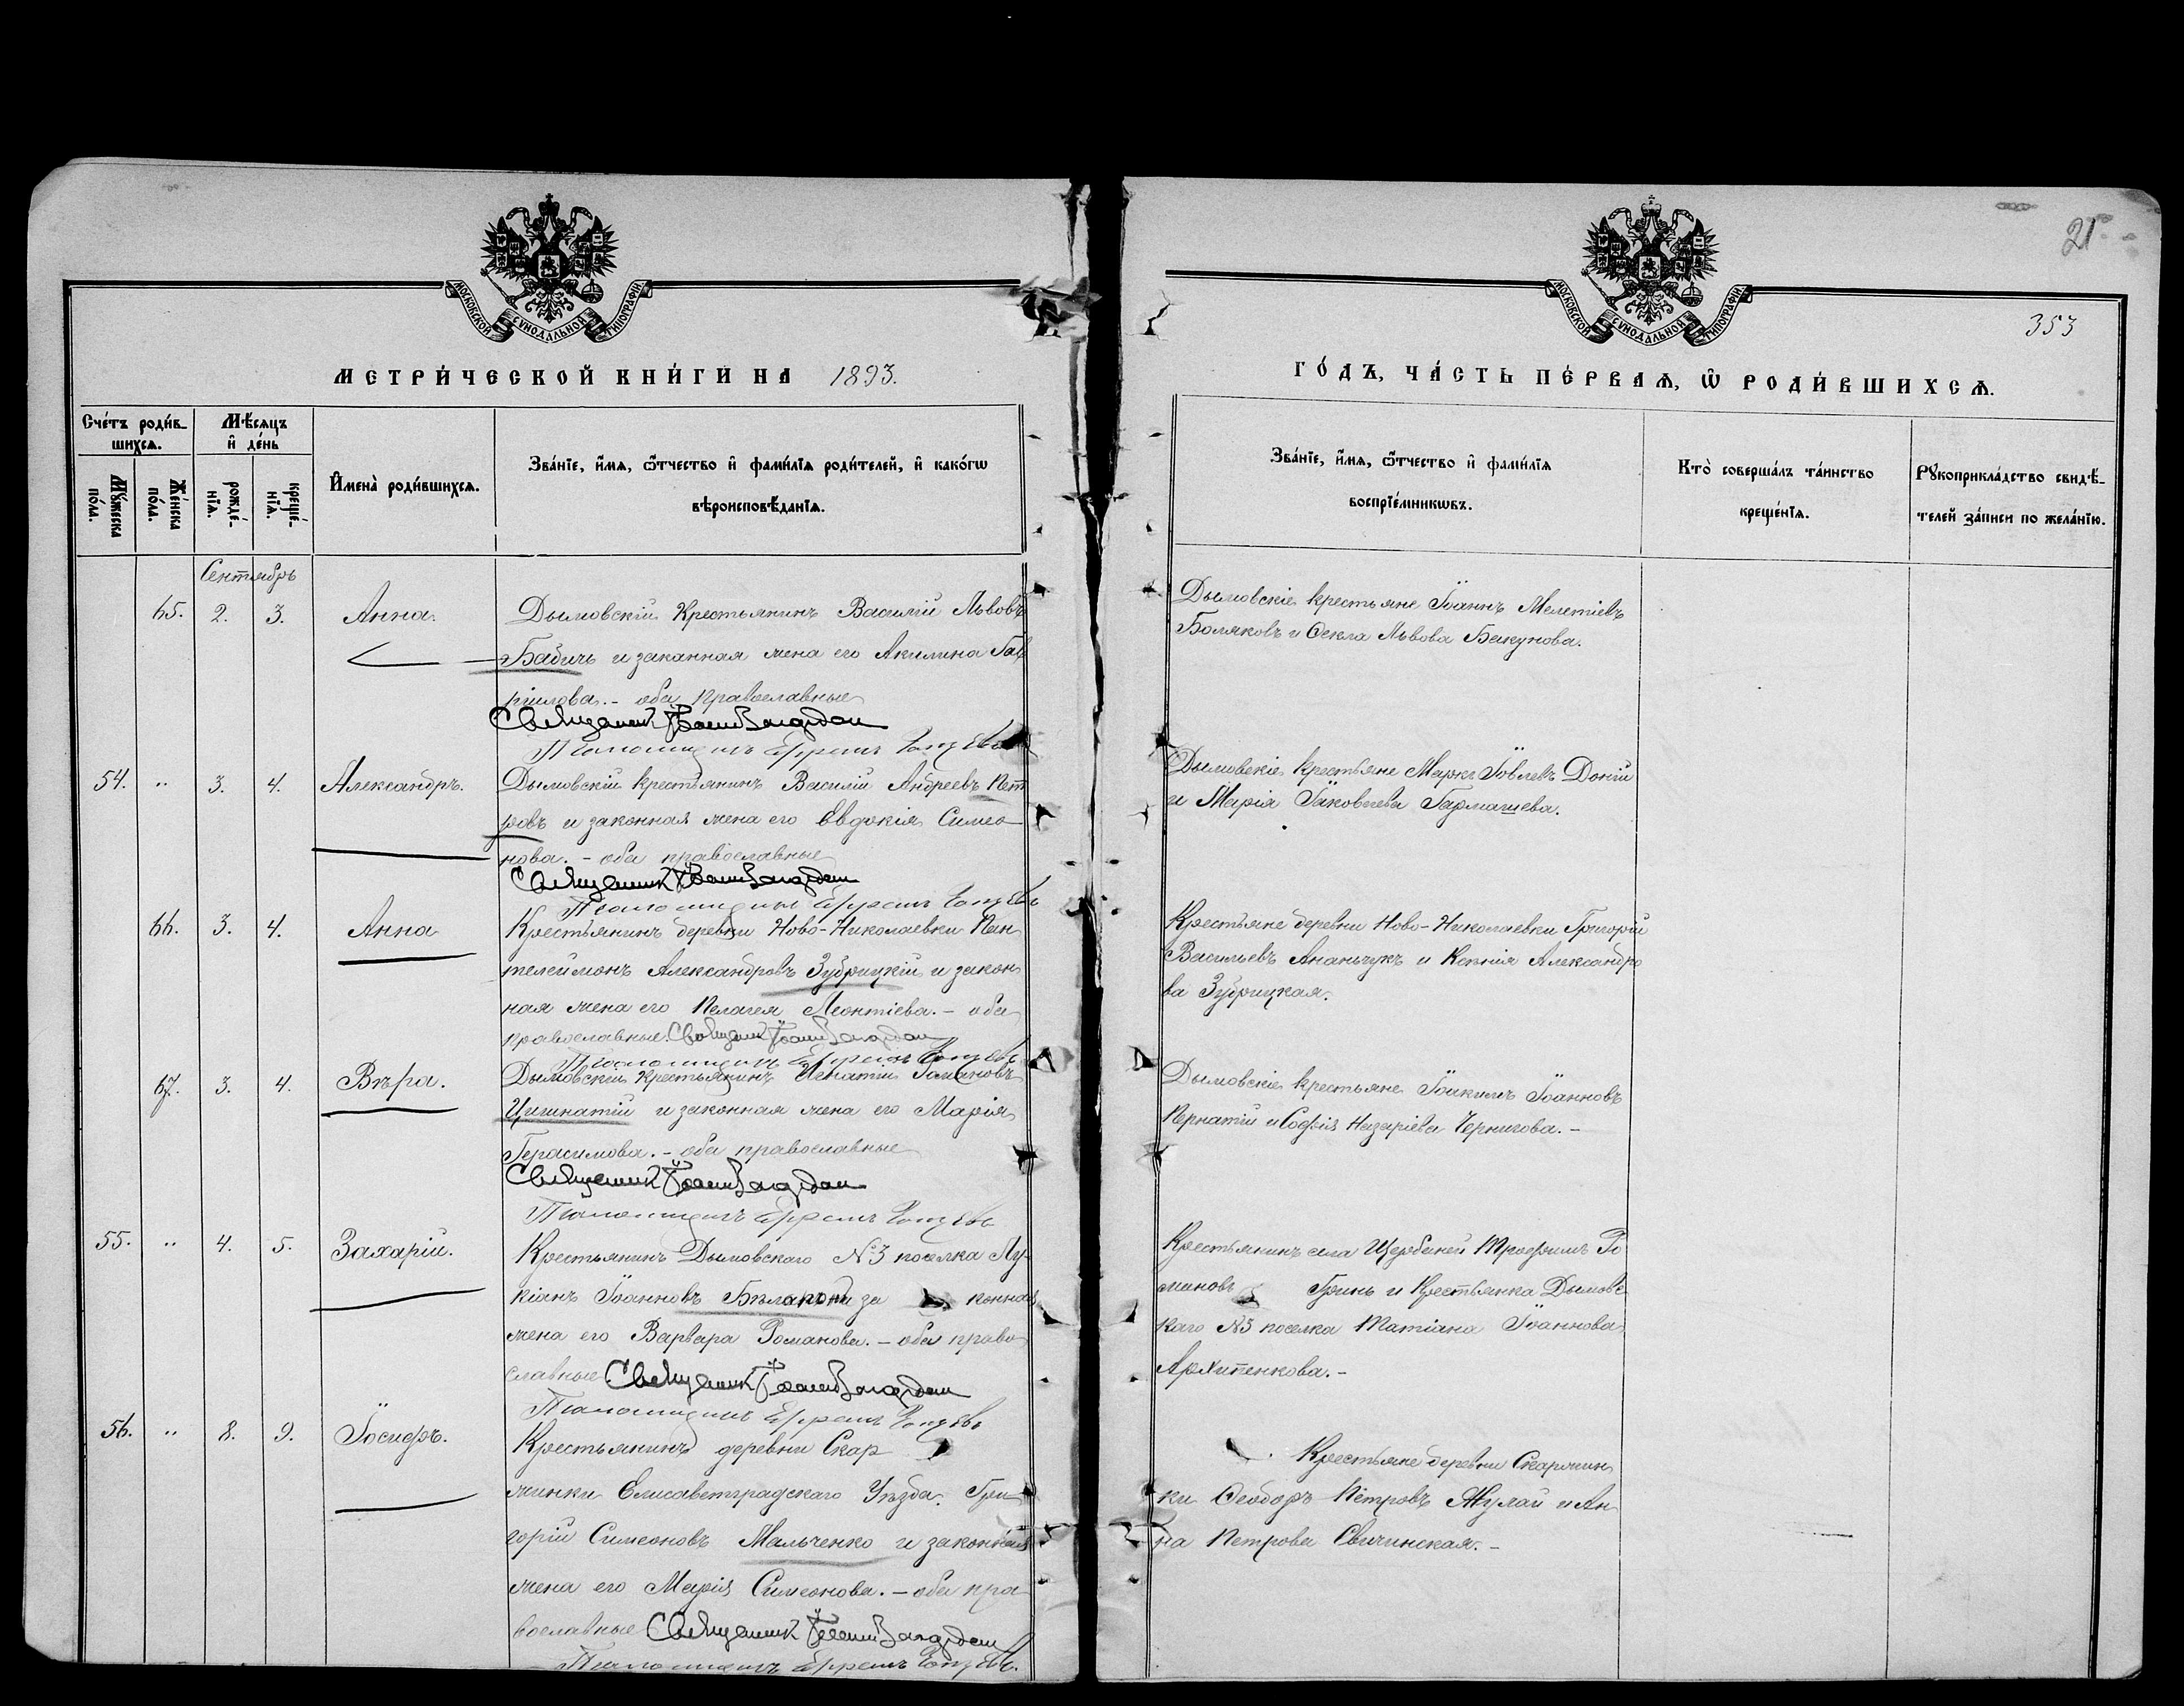 МОСКОВСКОЙ СѴНОДАЛЬНОЙ ТИПОГРАФІИ
МЕТРИ́ЧЕСКОЙ КНИ́ГИ НА 1893.
Сче́тъ роди́в-
шихсѧ.
Мѣ́сѧцъ
и҆ де́нь
Мꙋ́жеска
по́ла.
Же́нска
по́ла.
рожде́-
нїѧ.
креще́-
нїѧ.
И҆мена̀ роди́вшихсѧ.
Зва́нїе, и҆́мѧ, ѻ҆́тчество и҆ фами́лїѧ роди́телей, и҆ како́гѡ
вѣроисповѣ́данїѧ.
Сентябрь
65. 2. 3. Анна. Дымовскій Крестьянинъ Василій Львовъ
Бабичъ и законная жена его Акилина Гав
ріилова. - оба православные
Священник Іоанн
Псаломщикъ Ефремъ
54. " 3. 4. Александръ. Дымовскій крестьянинъ Василій Андреевъ Пет
ровъ и законная жена его Евдокія Симео
нова. - оба православные
Священник Іоанн
Псаломщикъ Ефремъ
66. 3. 4. Анна Крестьянинъ деревни Ново-Николаевки Пан
телеймонъ Александровъ Зубрицкій и закон
ная жена его Пелагея Леонтіева. - оба
православные. Священник Іоанн
Псаломщикъ Ефремъ
67. 3. 4. Вѣра. Дымовскій крестьянинъ Игнатій Романовъ
Цигинатій и законная жена его Марія
Герасимова. - оба православные
Священник Іоанн
Псаломщикъ Ефремъ
55. " 4. 5. Захарій. Крестьянинъ Дымовскаго №3 поселка Лу-
кіанъ Іоанновъ за конная
жена его Варвара Романова. - оба право
славные Священник Іоанн
Псаломщикъ Ефремъ
56. " 8. 9. Іосифъ. Крестьянинъ деревни Скар
жинки Елисаветградскаго Уѣзда Гри
горій Симеоновъ Мальченко и законная
жена его Марія Симеонова. - оба пра
вославные Священник Іоанн
Псаломщикъ Ефремъ
21
353
МОСКОВСКОЙ СѴНОДАЛЬНОЙ ТИПОГРАФІИ
ГО́ДЪ, ЧА́СТЬ ПЕ́РВАѦ, Ѡ҆ РОДИ́ВШИХСѦ.
Зва́нїе, и҆́мѧ, ѻ҆́тчество и҆ фами́лїѧ
воспрїе́мникѡвъ.
Кто̀ соверша́лъ та́инство
креще́нїѧ.
Рꙋкоприкла́дство свидѣ́-
телей за́писи по жела́нїю.
Дымовскіе крестьяне Іоаннъ Мелетіевъ
Боляковъ и Ѳекла Львова Бакунова.
Дымовскіе крестьяне Маркъ Іовлевъ Доній
и Марія Іаковлева Гармашева.
Крестьяне деревни Ново-Николаевки Григорій
Васильевъ Ананьчукъ и Ксенія Александро
ва Зубрицкая.
Дымовскіе крестьяне Іоакимъ Іоанновъ
Пернатій и Софія Назаріева Чернигова. -
Крестьянинъ села Щербаней Трофимъ Ро
мановъ Гринь и Крестьянка Дымовс
каго №3 поселка Татіана Іоаннова
Архипенкова. -
Крестьяне деревни Скаржин
ки Ѳеодоръ Петровъ Жулай и Ан
на Петрова Свичинская. -